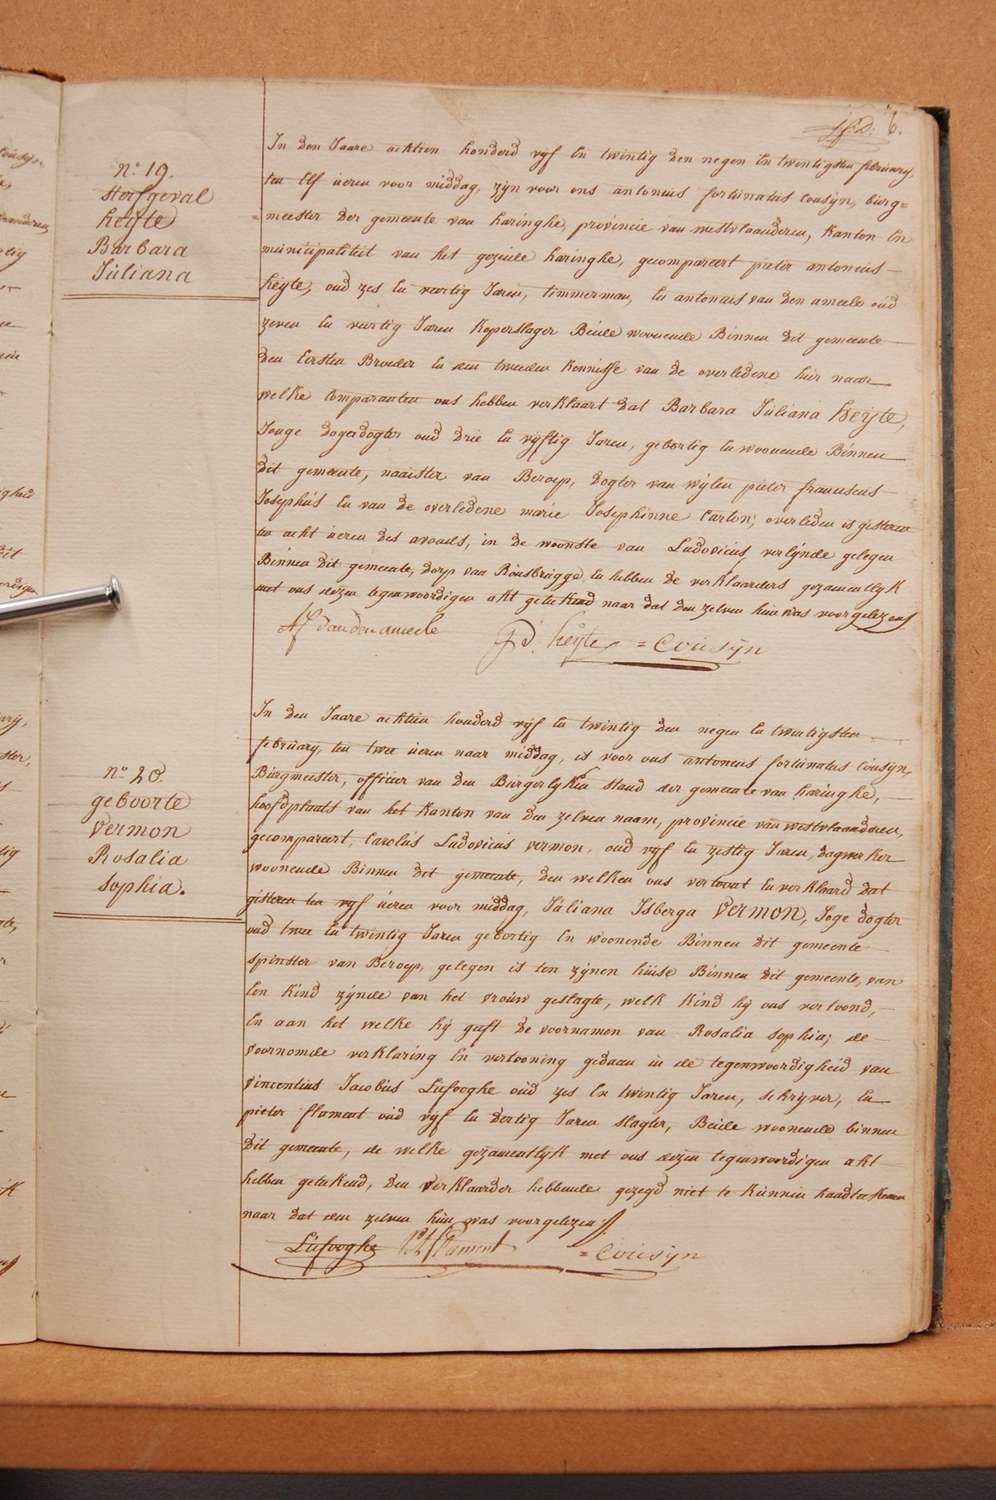 6.
N.º 19.
sterfgeval
heijte
Barbara
Juliana
In den Jaare achtien honderd vijf En twintig den negen En twintigsten february,
ten Elf ueren voor middag, zijn voor ons antonius fortunatus Cousyn, burg=
meester der gemeente van haringhe, provincie van westvlaanderen, kanton En
municipaliteit van het gezeide haringhe, gecompareert pieter antonius
heijte, oud zes En veertig Jaren, timmerman, En antonius van den ameele oud
zeven En veertig Jaren koperslager Beide woonende Binnen dit gemeente
den Eersten Broeder En den tweeden kennisse van de overledene hier naar
welke Comparanten ons hebben verklaart dat Barbara Juliana heijte,
Jonge dogerdogter oud drie En vijftig Jaren, gebortig En woonende Binnen
dit gemeente, naaister van Beroep, dogter van wijlen pieter franciscus
Josephus En van de overledene marie Josephinne Carton; overleden is gisteren
ten acht ueren des avonds, in de woonste van Ludovicus verlynde gelegen
Binnen dit gemeente, dorp van Rousbrugge En hebben de verklaarders gezamentlyk
met ons dezen tegenwoordigen akt geteekend naar dat den zelven hun was voorgelezen
A f Van den ameele P. d. heijte = Cousyn
N.º 20.
geboorte
Vermon
Rosalia
sophia.
In den Jaare achtien honderd vijf En twintig den negen En twintigsten
february, ten twee ueren naar middag, is voor ons antonius fortunatus Cousyn,
Burgmeister, officier van den Burgerlyken stand der gemeente van haringhe,
hoofdplaats van het kanton van den zelven naam, provincie van westvlaanderen,
gecompareert, Carolus Ludovicus vermon, oud vijf En zestig Jaren, dagwerker
woonende Binnen dit gemeente, den welken ons vertoont En verklaard dat
gisteren ten vijf ueren voor middag, Juliana Isberga Vermon, Joge dogter
oud twee En twintig Jaren gebortig En woonende Binnen dit gemeente
spinster van Beroep, gelegen is ten zijnen huise Binnen dit gemeente, van
Een kind zijnde van het vrouw geslagte, welk kind hij ons vertoond,
En aan het welke hij geeft de voornamen van Rosalia sophia; de
voornomde verklaring En vertooning gedaan in de tegenwoordigheid van
vincentius Jacobus Liefooghe oud zes En twintig Jaren, schryver, En
pieter flament oud vijf En dertig Jaren slagter, Beide woonende binnen
dit gemeente, de welke gezamentlyk met ons dezen tegenwoordigen akt
hebben geteekend, den verklaarder hebbende gezegd niet te kunnen handteekenen
naar dat den zelven hun was voorgelezen
Liefooghe flament = Cousyn